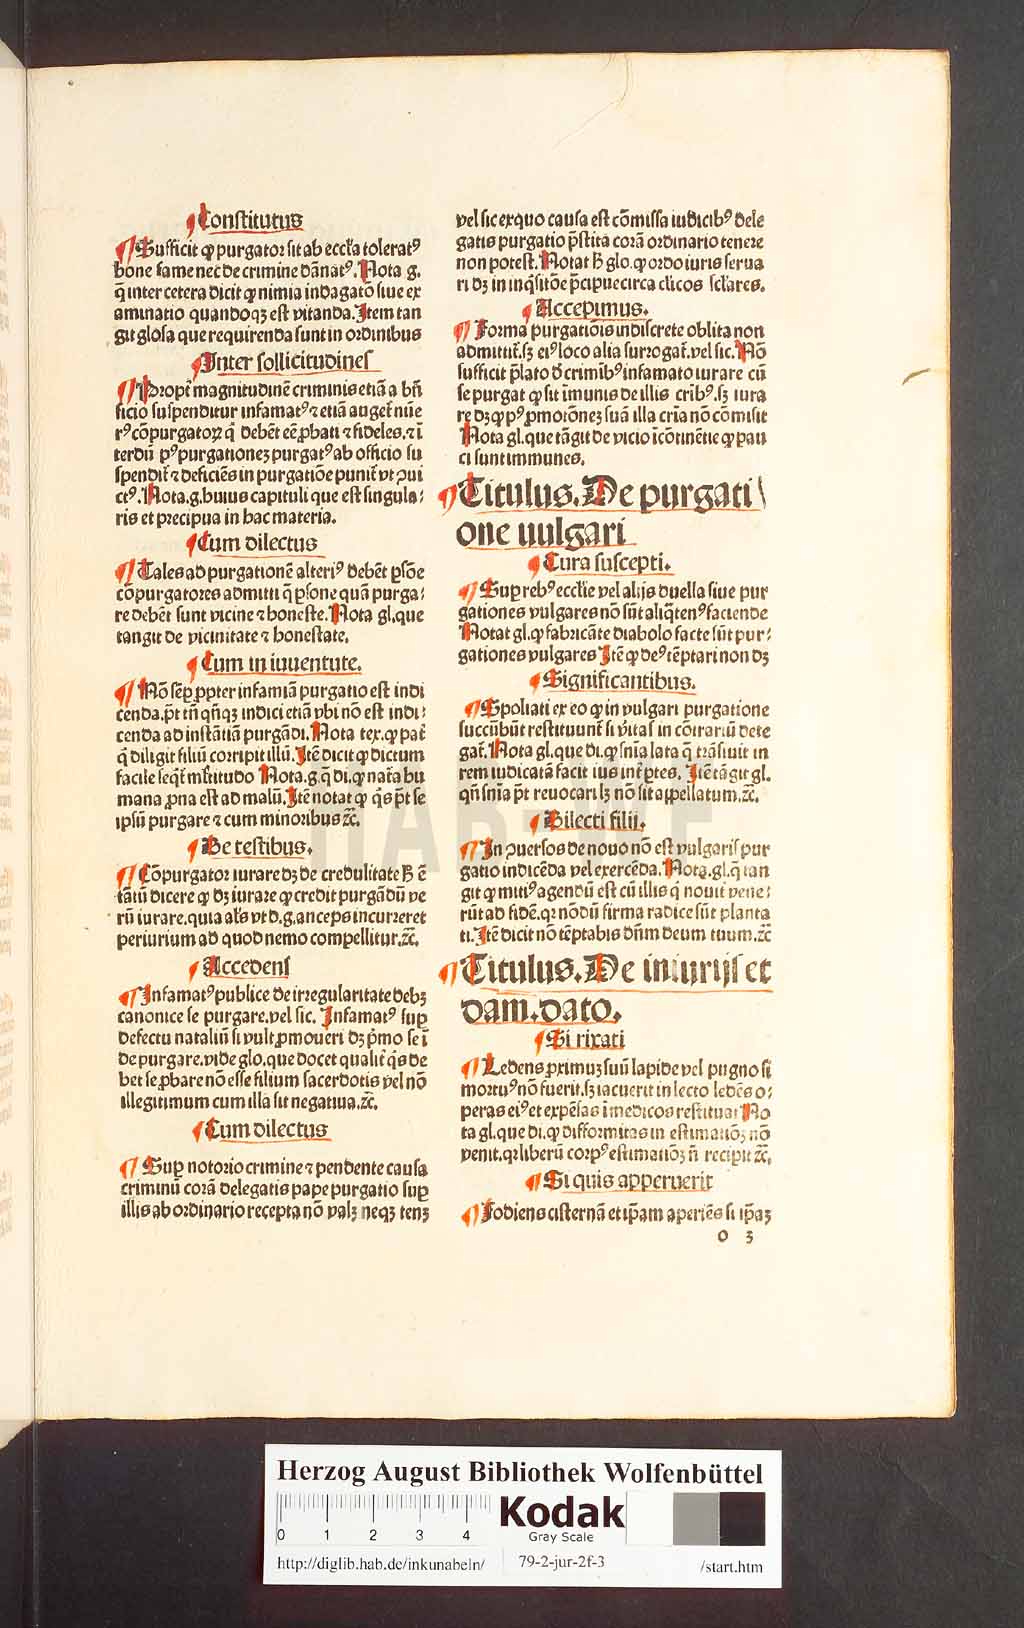 ¶ Constitutus
¶ Sufficit ꝙ purgator sit ab eccl'ia toleratꝰ
bone fame nec de crimine dānatꝰ. Nota g.
q̄ inter cetera dicit ꝙ nimia indagatō siue ex
aminatio quandoqꝫ est vitanda. Item tan
git glosa que requirenda sunt in ordinibus
¶ Inter sollicitudines
¶ Propt' magnitudinē criminis etiā a bn̄
ficio suspenditur infamatꝰ ⁊ etiā auget' nūe
rꝰ cōpurgatoꝝ q̄ debēt eē ꝓbati ⁊ fideles. ⁊ ī
terdū pꝰ purgationeꝫ purgatꝰ ab officio su
spendit' ⁊ deficiēs in purgatiōe punit' vt ꝯui
ctꝰ. Nota. g. huius capituli que est singula:
ris et precipua in hac materia.
¶ Cum dilectus
¶ Tales ad purgationē alteriꝰ debēt ꝑsōe
cōpurgatores admitti q̄ ꝑsone quā purga:
re debēt sunt vicine ⁊ honeste. Nota gl. que
tangit de vicinitate ⁊ honestate.
¶ Cum in iuuentute.
¶ Nō semꝑ ꝓpter infamiā purgatio est indi
cenda. p̄t tn̄ qn̄qꝫ indici etiā vbi nō est indi:
cenda ad instātiā purgādi. Nota tex. ꝙ pat'
q̄ diligit filiū corripit illū. Itē dicit ꝙ dictum
facile seqt' mltitudo Nota. g. q̄ di. ꝙ nat'a hu
mana ꝓna est ad malū. Itē notat ꝙ q̄s p̄t se
ipsū purgare ⁊ cum minoribus ⁊c̄.
¶ De testibus.
¶ Cōpurgator iurare dꝫ de credulitate ꝶ ē
tātū dicere ꝙ dꝫ iurare ꝙ credit purgādū ve
rū iurare. quia al's vt d. g. anceps incurreret
periurium ad quod nemo compellitur. ⁊c̄.
¶ Accedens
¶ Infamatꝰ publice de irregularitate debꝫ
canonice se purgare. vel sic. Infamatꝰ suꝑ
defectu nataliū si vult ꝓmoueri dꝫ p̄mo se ī
de purgare. vide glo. que docet qualit' q̄s de
bet se ꝓbare nō esse filium sacerdotis vel nō
illegitimum cum illa sit negatiua. ⁊c̄.
¶ Cum dilectus
¶ Suꝑ notorio crimine ⁊ pendente causa
criminū corā delegatis pape purgatio suꝑ
illis ab ordinario recepta nō valꝫ neqꝫ tenꝫ
vel sic ex quo causa est cōmissa iudicibꝰ dele
gatis purgatio p̄stita corā ordinario tenere
non potest. Notat ꝶ glo. ꝙ ordo iuris serua
ri dꝫ in inq̄sitōe p̄cipue circa cl'icos sc'lares.
¶ Accepimus.
¶ Forma purgatiōis indiscrete oblita non
admittit'. sꝫ eiꝰ loco alia surrogat'. vel sic. Nō
sufficit p̄lato d' crimībꝰ infamato iurare cū
se purgat ꝙ sit īmunis de illis crībꝰ. sꝫ iura
re dꝫ ꝙ pꝰ ꝓmotionēꝫ suā illa cr'ia nō cōmisit
Nota gl. que tāgit de vicio īcōtinētie ꝙ pau
ci sunt immunes.
¶ Titulus. De purgati
one uulgari
¶ Cura suscepti.
¶ Sup rebꝰ eccl'ie vel alijs duella siue pur
gationes vulgares nō sūt aliq̄tenꝰ faciende
Notat gl. ꝙ fabricāte diabolo facte sūt pur:
gationes vulgares Itē ꝙ deꝰ tēptari non dꝫ
¶ Significantibus.
¶ Spoliati ex eo ꝙ in vulgari purgatione
succūbūt restituunt' si v'itas in cōtrariū dete
gat'. Nota gl. que di. ꝙ sn̄ia lata q̄ trāsiuit in
rem iudicatā facit ius int' ꝑtes. Itē tāgit gl.
qn̄ sn̄ia p̄t reuocari lꝫ nō sit appellatum. ⁊c̄.
¶ Dilecti filij.
¶ In ꝯuersos de nouo nō est vulgaris pur
gatio indicēda vel exercēda. Nota. gl. q̄ tan
git ꝙ mitiꝰ agendū est cū illis q̄ nouit' vene:
rūt ad fidē. qꝛ nōdū firma radice sūt planta
ti. Itē dicit nō tēptabis dn̄m deum tuum. ⁊c̄
¶ Titulus. De iniurijs et
dam. dato.
¶ Si rixati
¶ Ledens ꝓximuꝫ suū lapide vel pugno si
mortuꝰ nō fuerit. sꝫ iacuerit in lecto ledēs o:
peras eiꝰ et expēsas ī medicos restituat No
ta gl. que di. ꝙ difformitas in estimatiōꝫ nō
venit. qꝛ liberū corpꝰ estimatiōꝫ n̄ recipit ⁊c̄.
¶ Si quis apperuerit
¶ Fodiens cisternā et ip̄am aperiēs si ip̄aꝫ
o 3
HAB - WF
Herzog August Bibliothek Wolfenbüttel
0 1 2 3 4
Kodak
Gray Scale
http://diglib.hab.de/inkunabeln/ 79-2-jur-2f-3 /start.htm